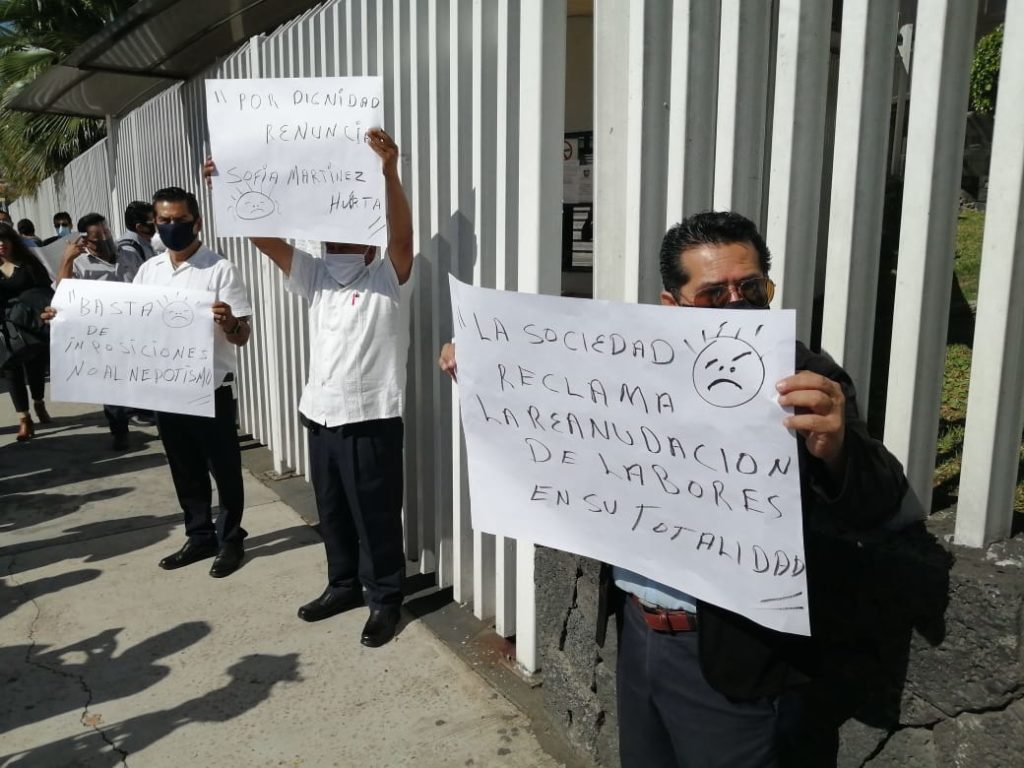 " POR DIGNIDAD
RENUNCIA
SOFÍA MARTÍNEZ
HUERTA
" BASTA
DE
INPOSICIONES
NO AL NEPOTISMO
" LA SOCIEDAD
RECLAMA
LA REANUDACION
DE LABORES
EN SU TOTALIDAD